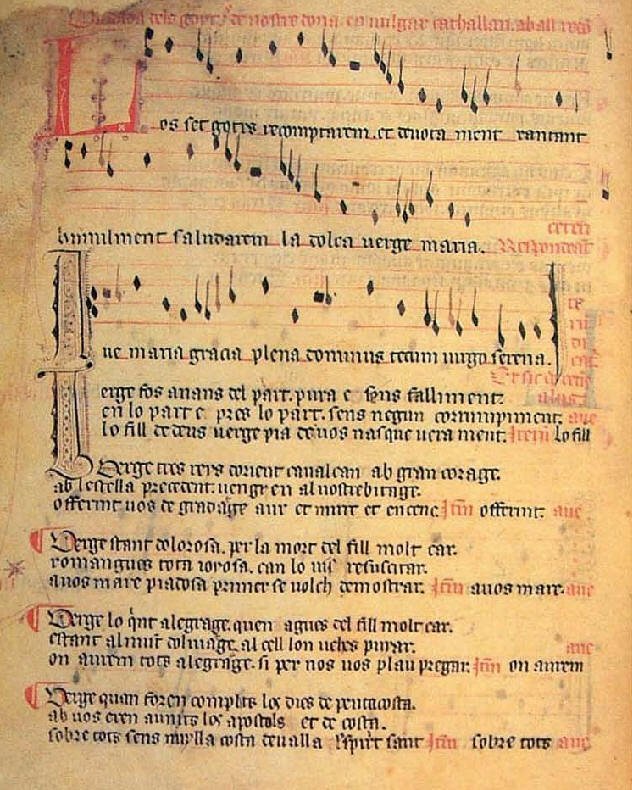 Ballada dels goytx de nostre dona en vulgar cathallan. a ball redo
Los set gotxs recomptarem et devota ment xantant
humilment saludarem la dolça verge maria.
ceteri
Respondeat
Ave maria gracia plena dominus tecum virgo serena.
Verge fos anans del part. pura e sens falliment.
en lo part e pres lo part. sens negun corrumpiment. ave
lo fill de deus verge pia de vos nasque vera ment. Item lo fill
Verge tres reys dorient cavalcan ab gran corage.
ab lestella precedent. vengren al vostre bitatge.
offerint vos de gradatge aur et mirr et encenç. Item offerint. ave
Verge stant dolorosa. per la mort del fill molt car.
romangues tota joyosa. can lo vis resuscitar.
a vos mare piadosa primer se volch demostrar. Item a vos mare. ave
Verge lo qint alegratge. quen agues del fill molt car.
estant al munt dolivatge. al cell lon veles puyar. ave
on aurem tots alegratge. si per nos vos plau pregar. Item on aurem
Verge quan foren complits los dies de pentacosta.
ab vos eren aunits los apostols et de costa.
sobre tots sens nuylla costa devalla lespirit sant Item sobre tots ave